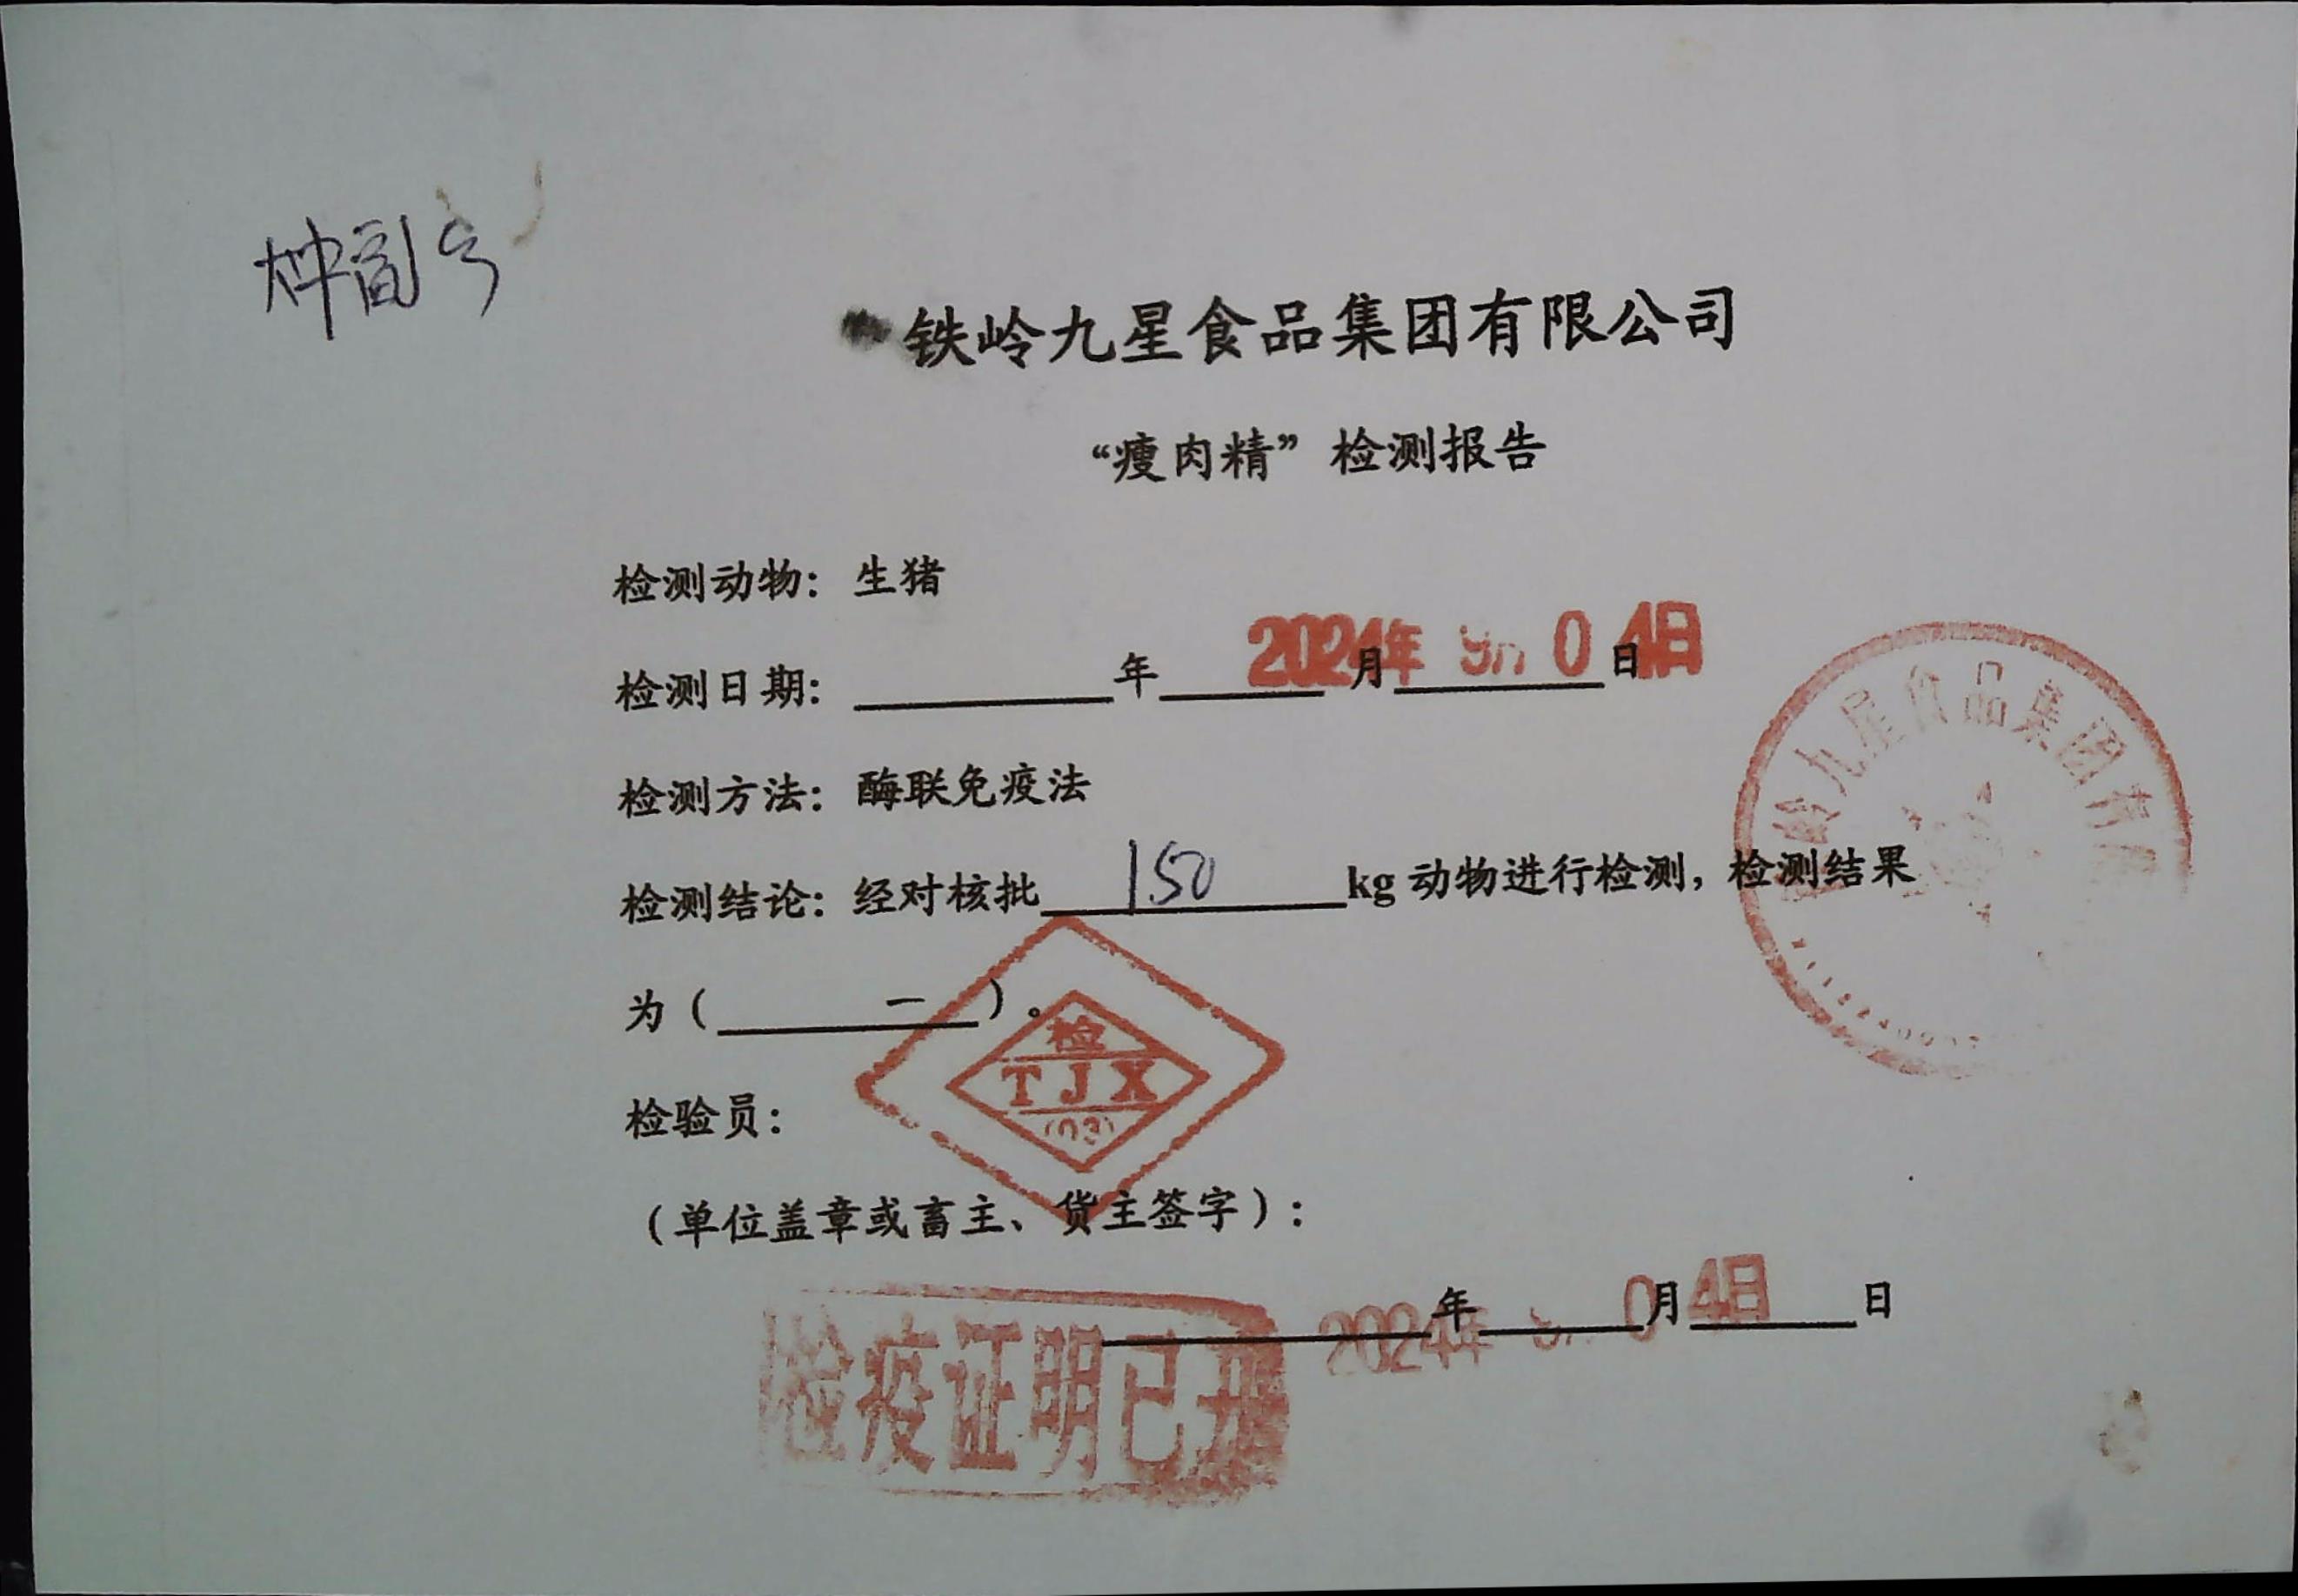 铁岭九星食品集团有限公司
“瘦肉精”检测报告
检测动物：生猪
检测日期：年月日
2024年 04日
检测方法：酶联免疫法
检测结论：经对核批150kg动物进行检测，检测结果
为（一）。
检
TJX
(03)
检验员：
（单位盖章或畜主、货主签字）：
年月日
2024年 04日
检疫证明已开
岭九星食品集团有